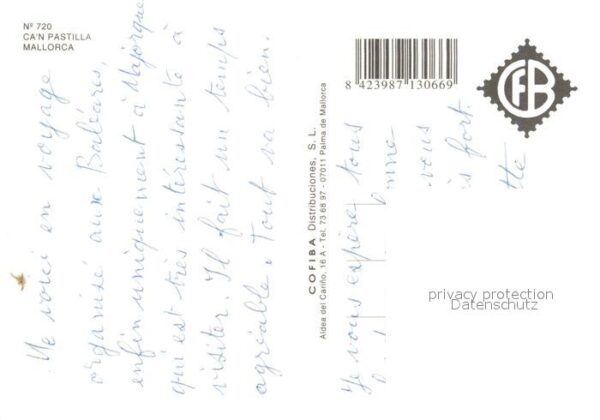 Nº 720
CA'N PASTILLA
MALLORCA
Me voici en voyage
organisé aux Baléares,
enfin uniquement à Majorque
qui est très intéressante à
visiter. Il fait un temps
agréable. Tout va bien.
COFIBA Distribuciones, S. L.
Aldea del Cariño, 16 A - Tel. 73 68 97 - 07011 Palma de Mallorca
8 423987 130669
CFB
Je vous espère tous
mme
vous
s fort.
tte
privacy protection
Datenschutz